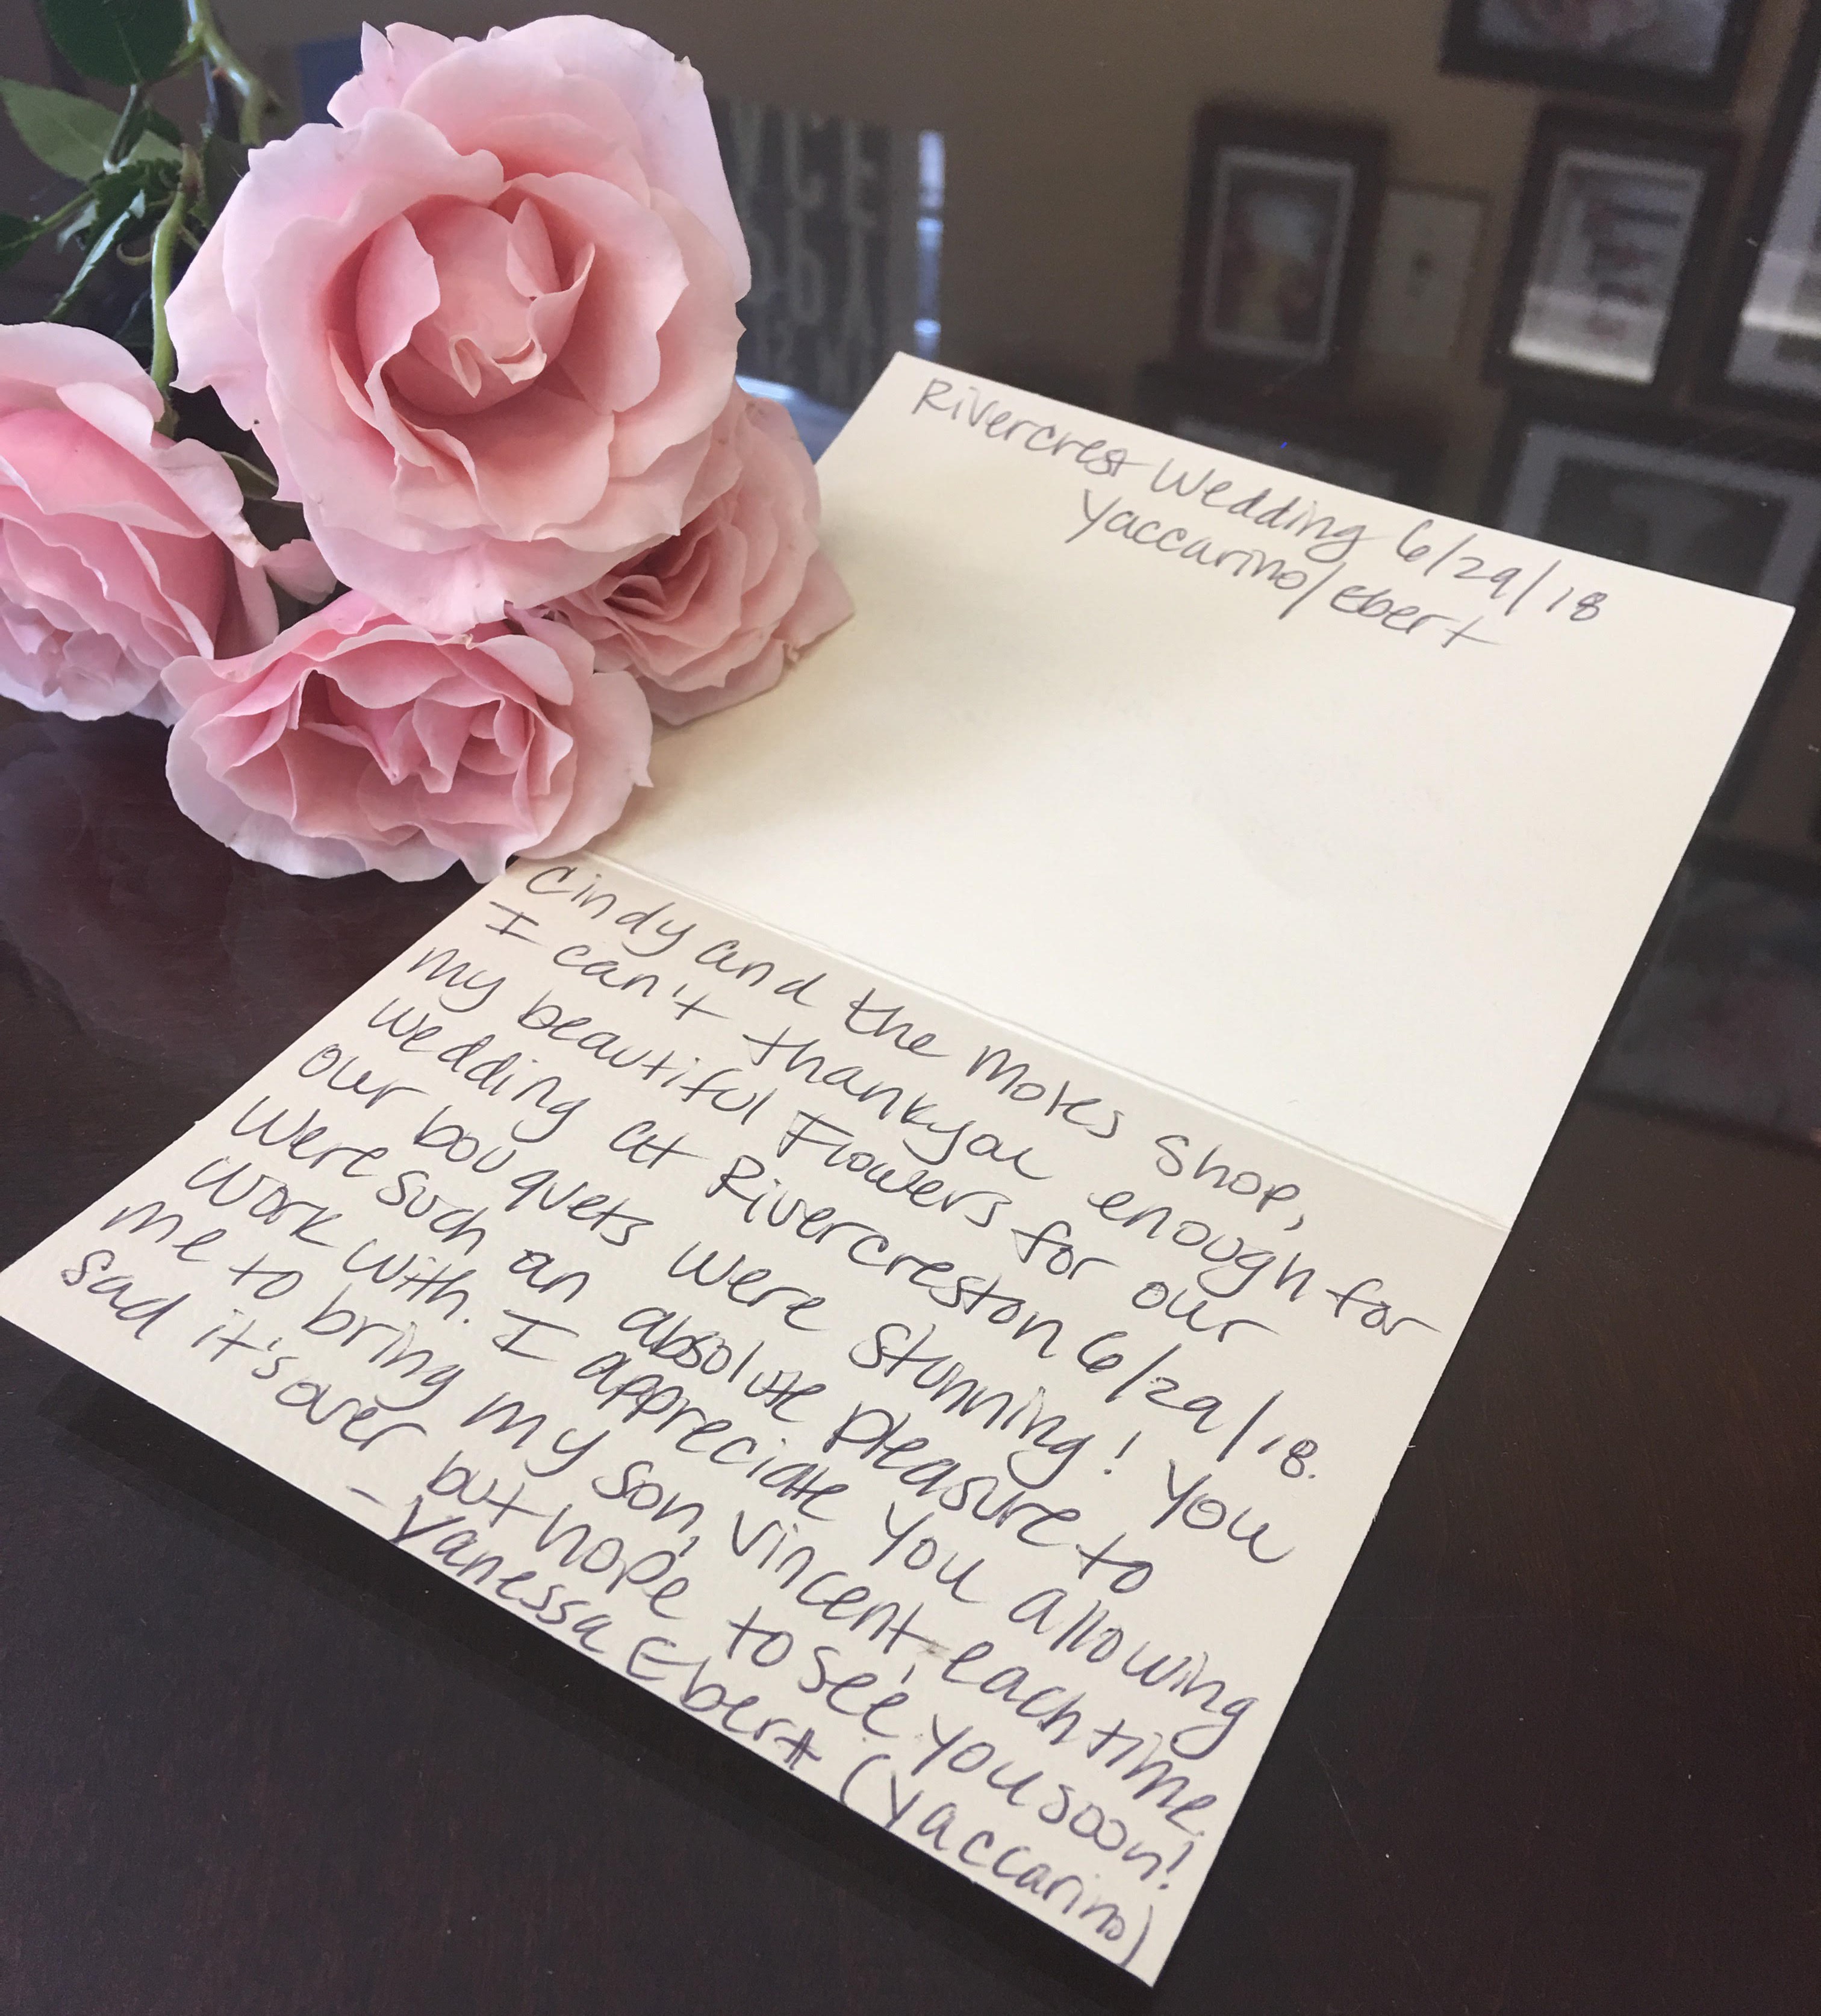 Rivercrest Wedding 6/29/18
Yaccarino/Ebert
Cindy and the Moles Shop,
I can't thankyou enough for
my beautiful Flowers for our
wedding at Rivercrest on 6/29/18.
our bouquets were stunning! You
were such an absolute pleasure to
work with. I appreciate you allowing
me to bring my son, Vincent, each time.
sad it's over but hope to see you soon!
- Vanessa Ebert (Yaccarino)